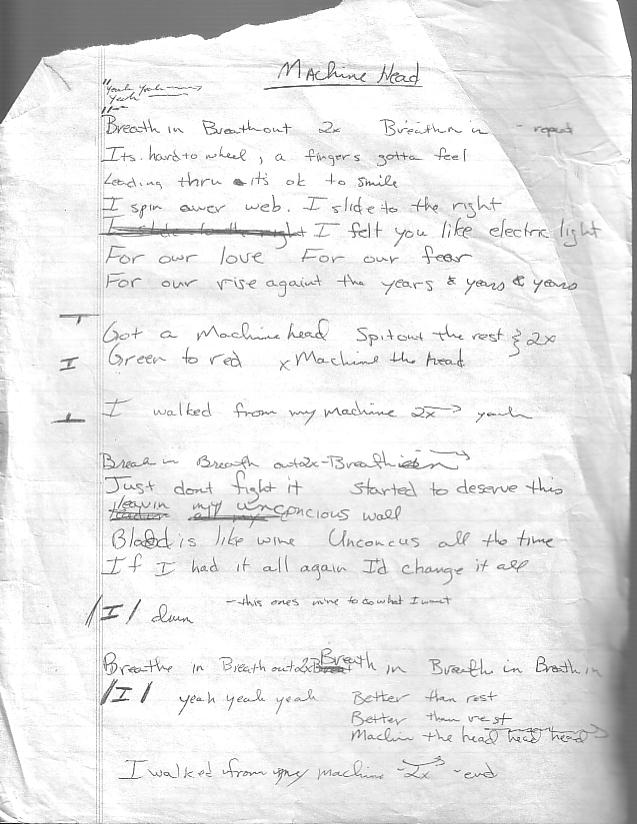 Machine Head
"Yeah Yeah
Yeah"
Breath in Breath out 2x Breath in - repeat
Its hard to wheel, a fingers gotta feel
Leading thru it's ok to smile
I spin ower web. I slide to the right
I slide to the right I felt you like electric light
For our love For our fear
For our rise againt the years & years & years
Got a Machine head Spit out the rest } 2x
I Green to red x Machine the head
I walked from my machine 2x yeah
Break in Breath out 2x - Breath in
Just dont fight it Started to deserve this
leavin my unconcious wall
Blood is like wine Unconcus all tho time
If I had it all again I'd change it all
- this ones mine to do what I want
/I/ dum
Breathe in Breath out 2x Breath in Breath in Breath in
/I/ yeah yeah yeah Better than rest
Better than rest
Machin the head head head
I walked from my machine - 2x - end